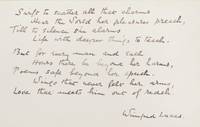 Swift to scatter all their charms
Hear the World her pleasures preach,
Till to silence she alarms
Life with deeper things to teach.
But for every man and each
Hours there be beyond her harms,
Poems safe beyond her speech.
Wings that never felt her arms,
Love that meets him out of reach.
Winifred Lucas.